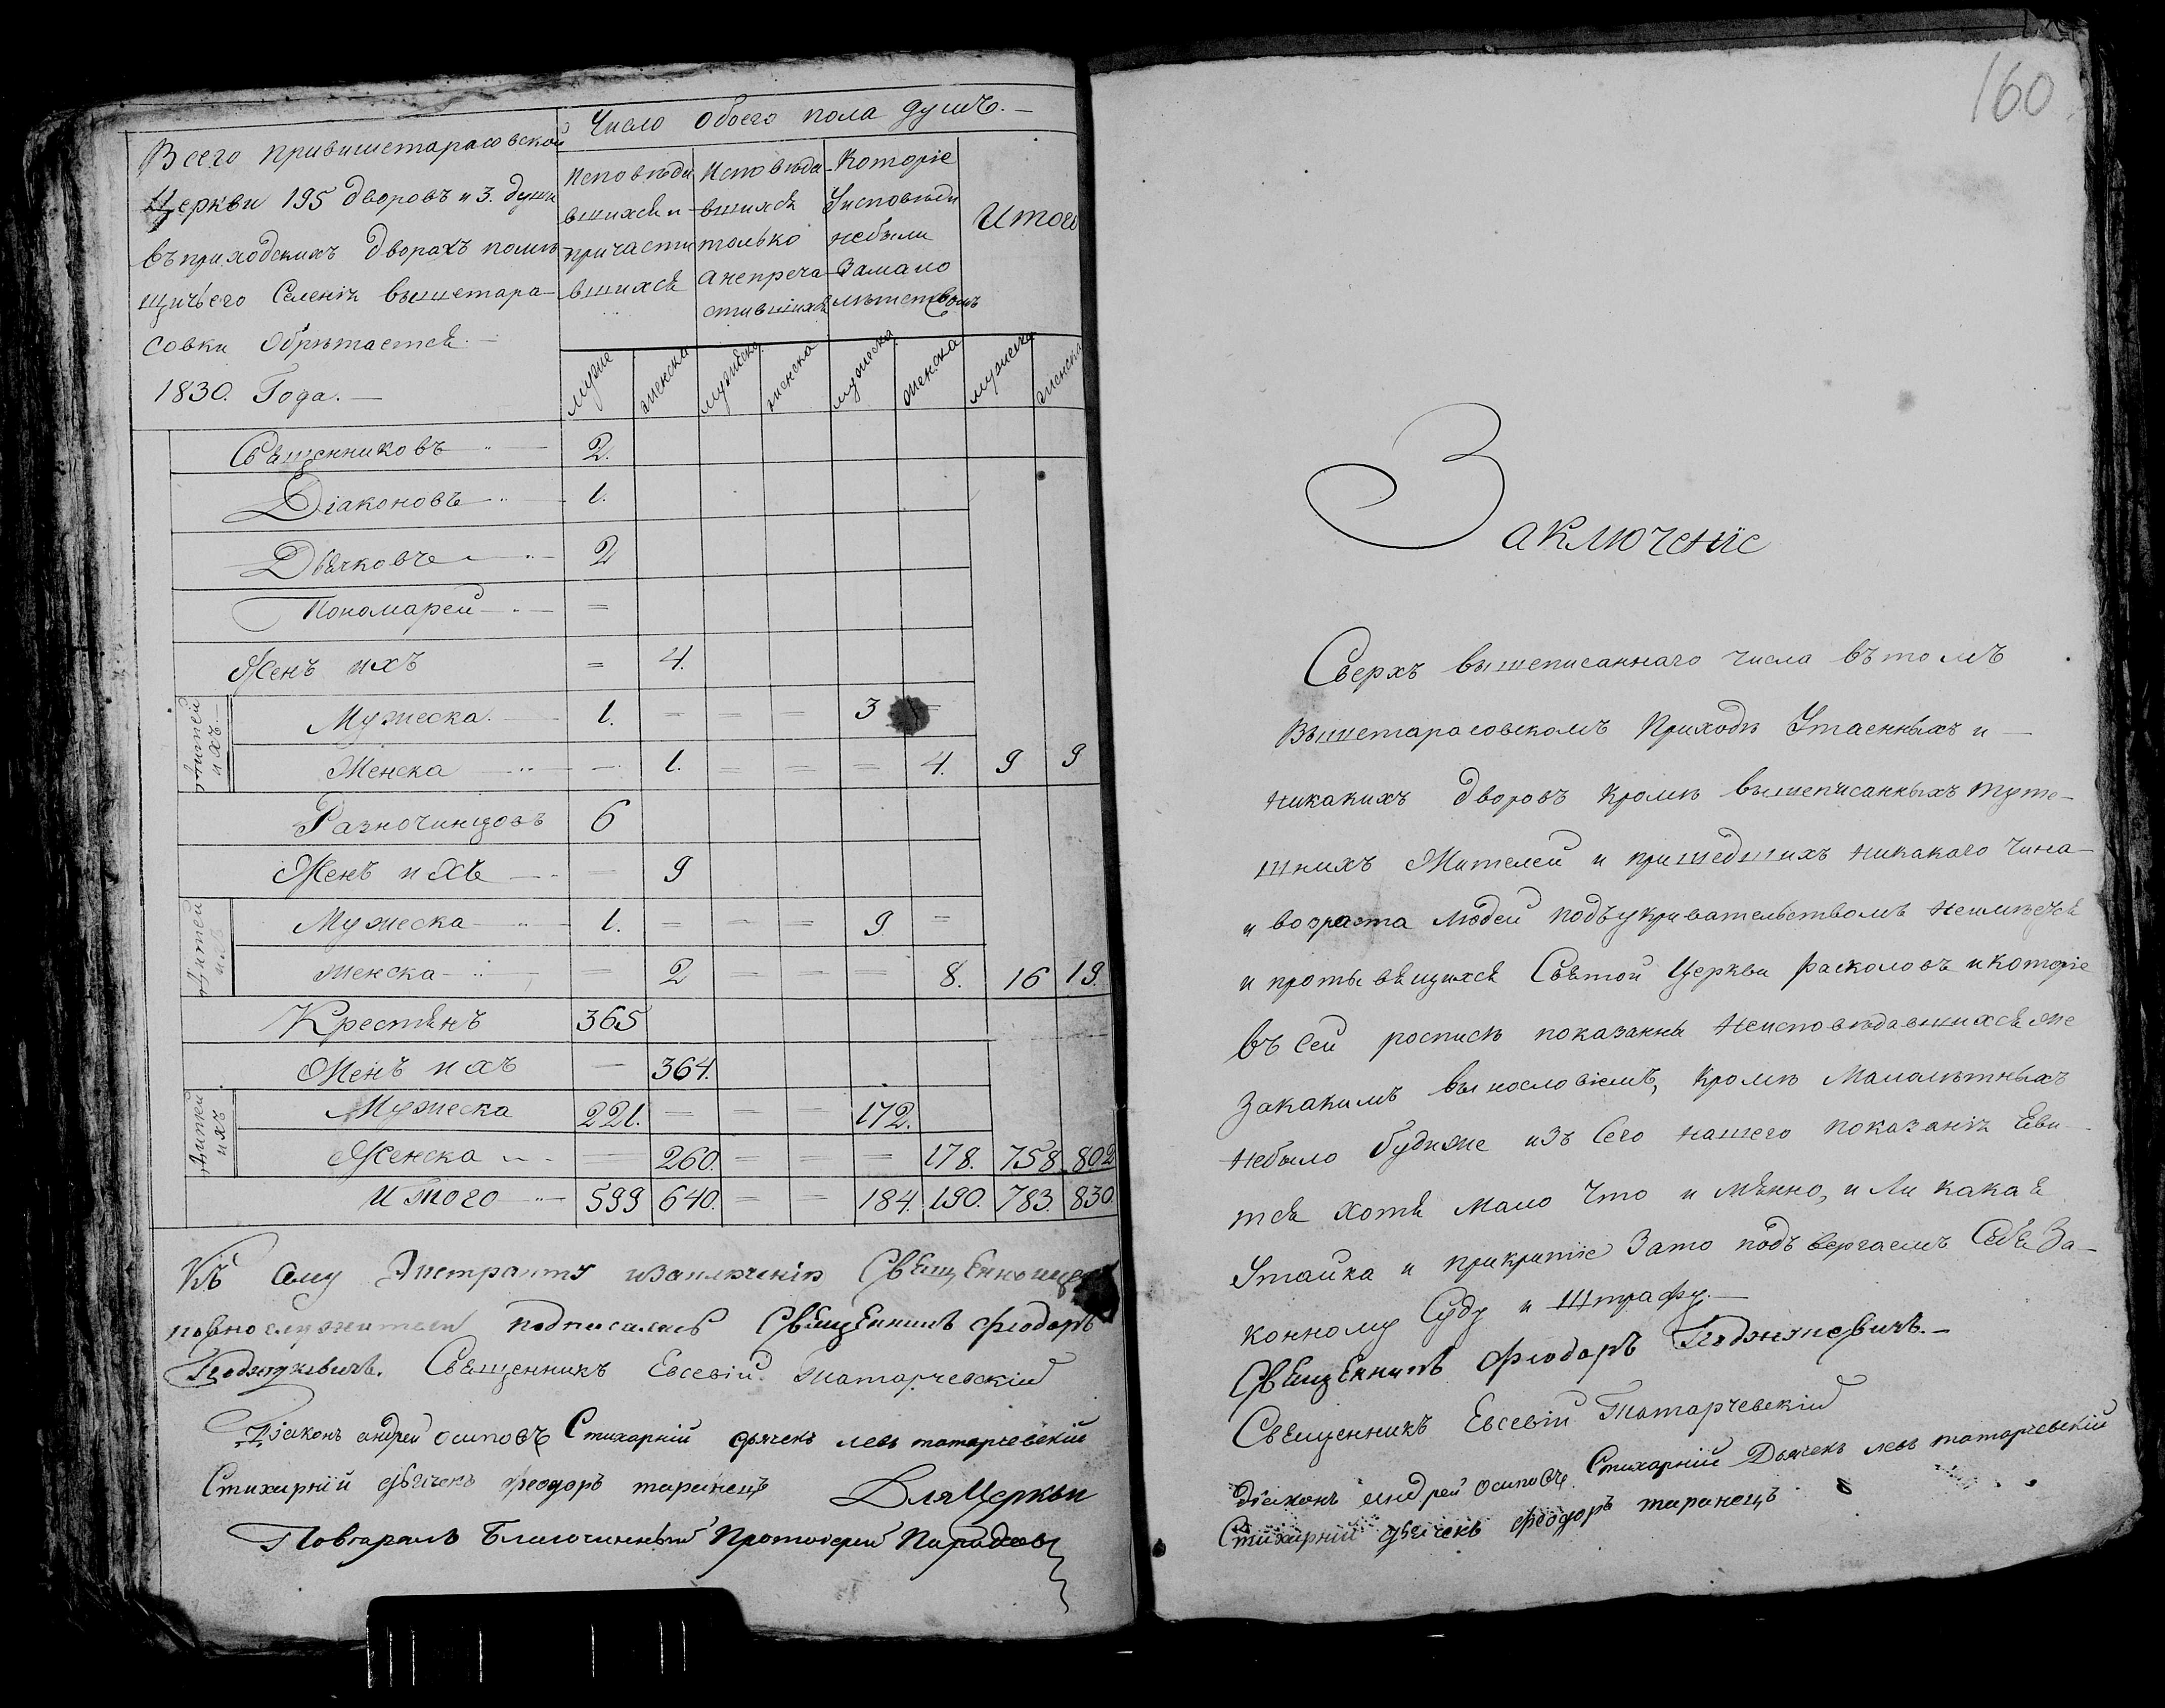 Число обоего пола душъ.
Всего привишетарасовской
Церкви 195 дворовъ и 3. души
въ приходскихъ дворахъ помѣ
щичьего Селенія вышетара-
совки обрѣтается.
1830. Года.
Исповѣда
вшихся и
причасти
вшихся
Исповѣда
вшихся
только
а непреча
стившихся
Которіе
Уисповѣди
небыли
Замало
лѣтствомъ
Итого
муже женска мужеска женска мужеска женска мужеска женска
Священниковъ 2.
Діаконовъ 1.
Дьячковъ 2
Пономарей =
Женъ ихъ = 4.
Дѣтей ихъ
Мужеска. 1. = = = 3
Женска — 1. = = = 4. 9 9
Разночинцовъ 6
Женъ ихъ — 9
Дѣтей ихъ
Мужеска 1. = = = 9 =
Женска = 2 = = = 8. 16 19.
Крестянъ 365
Женъ ихъ — 364.
Дѣтей ихъ
Мужеска 221. = = = 172.
Женска = 260. = = = 178. 758 802
Итого 599 640. = = 184. 190. 783. 830.
Къ сему Экстракту изаключенію Священноице
ковнослужители подписались Священникъ Феодоръ
Священникъ Евсевій Татарчевскій
Діаконъ андрей осиповъ Стихарній дячекъ левъ татарчевскій
Стихарній дьячекъ феодоръ таранецъ Для Церкви
Благочинный Протоіерей
160
Заключеніе
Сверхъ вышеписаннаго числа въ томъ
Вышетарасовскомъ Приходѣ Утаенныхъ и —
никакихъ дворовъ кромѣ вышеписанныхъ туте-
шнихъ Жителей и пришедшихъ никакаго чина
и возраста людей подъукривательствомъ неимѣется
и протывящихся Святой Церкви расколовъ и которіе
въ сей росписѣ показанны Неисповѣдавшихся же
закакимъ вынословіемъ, кромѣ Малолѣтныхъ
небыло будиже изъ Сего нашего показанія Еви-
тся хотя мало что и мѣнно, и ли какая
Утайка и прикритіе Зато подъвергаемъ Себя За-
конному Суду и Штрафу.
Священникъ Феодоръ
Священникъ Евсевій Татарчевскій
Діаконъ андрей осиповъ Стихарній Дьячекъ левъ татарчевскій
Стихарній дьячекъ феодоръ таранецъ